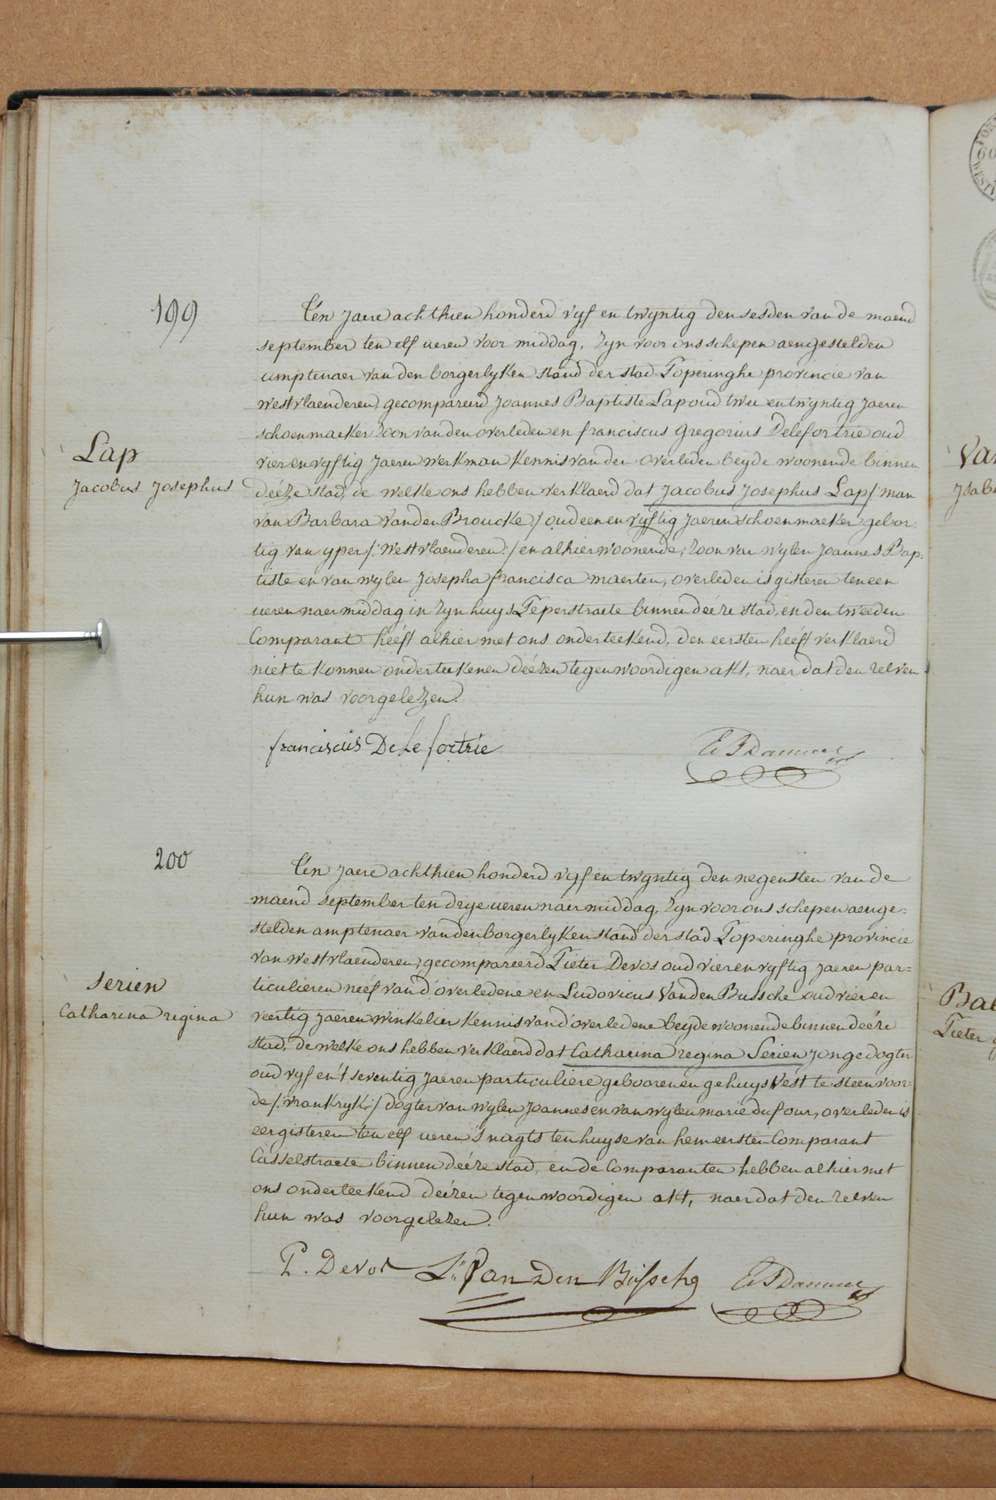 199
Lap
Jacobus Josephus
Ten Jaere achthien honderd vyf en twyntig den sesden van de maend
september ten elf ueren voor middag, Zyn voor ons schepen aengestelden
amptenaer van den borgerlyken stand der stad Poperinghe provincie van
westvlaenderen, gecompareerd Joannes Baptiste Lap oud twee en twyntig Jaeren
schoenmaeker Zoon van den overleden en franciscus Gregorius Delefortrie oud
vier en vyftig Jaeren werkman kennis van den overleden beyde woonende binnen
deéze stad, de welke ons hebben verklaerd dat Jacobus Josephus Lap /: man
van Barbara Vanden Broucke :/ oud een en vyftig Jaeren schoenmaeker gebor-
tig van yper /: Westvlaenderen :/ en alhier woonende, Zoon van wylen Joannes Bap-
tiste en van wylen Josepha francisca maerten, overleden is gisteren ten een
ueren naermiddag in Zyn huys Peperstraete binnen deéze stad, en den tweeden
Comparant heéft alhier met ons onderteekend, den eersten heéft verklaerd
niet te konnen onderteekenen deézen tegenwoordigen akt, naer dat den zelven
hun was voorgelezen.
franciscus De Le fortrie
200
Serien
Catharina regina
Ten Jaere achthien honderd vyf en twyntig den negensten van de
maend september ten drye ueren naermiddag, Zyn voor ons schepen aenge-
stelden amptenaer van den borgerlyken stand der stad Poperinghe provincie
van westvlaenderen, gecompareerd Pieter Devos oud vier en vyftig Jaeren par-
ticulieren neef van d'overledene en Ludovicus Vanden Bussche oud vier en
veertig Jaeren winkelier kennis van d'overledene beyde woonende binnen deéze
stad, de welke ons hebben verklaerd dat Catharina regina Serien Jonge dogter
oud vyf en 't seventig Jaeren particuliere geboren en gehuysvest te steenvoor-
de /: vrankryk :/ dogter van wylen Joannes en van wylen marie dufour, overleden is
eergisteren ten elf ueren 's nagts ten huyse van hem eersten Comparant
Casselstraete binnen deéze stad, en de Comparanten hebben alhier met
ons onderteekend deézen tegenwoordigen akt, naer dat den zelven
hun was voorgelezen.
P. Devos L: Van Den Bussche
Pieter